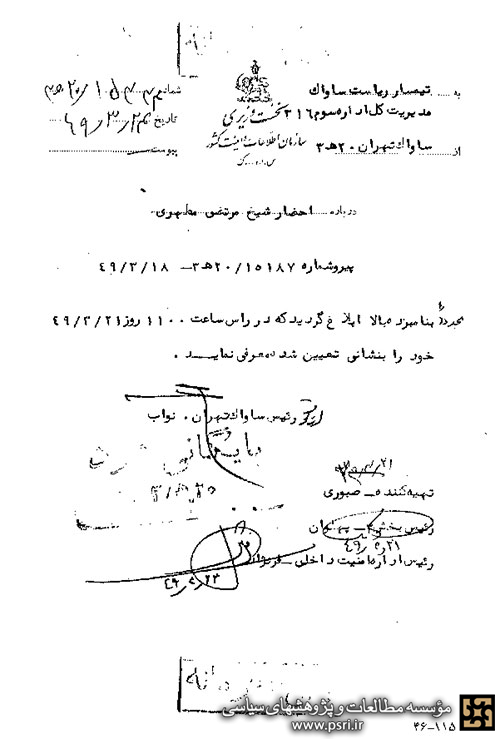 به تیمسار ریاست ساواک
مدیریت کل اداره سوم ۳۱۶
از ساواک تهران ۲۰ ه‍ ۳
نخست وزیری
سازمان اطلاعات و امنیت کشور
س.ا.و.ا.ک
شماره
تاریخ ۴۹/۳/۲۴
پیوست
درباره احضار شیخ مرتضی مطهری
پیرو شماره ۱۵۱۸۷/۲۰ ه‍ ۳ - ۴۹/۳/۱۸
مجدداً بنامبرده بالا ابلاغ گردید که در راس ساعت ۱۱۰۰ روز ۴۹/۳/۲۱
خود را بنشانی تعیین شده معرفی نماید .
رئیس ساواک تهران . نواب
بایگانی
تهیه کننده - صبوری
رئیس بخش
رئیس اداره امنیت داخلی -
۴۹/۳/۲۳
مؤسسه مطالعات و پژوهشهای سیاسی
www.psri.ir
۴۶-۱۱۵